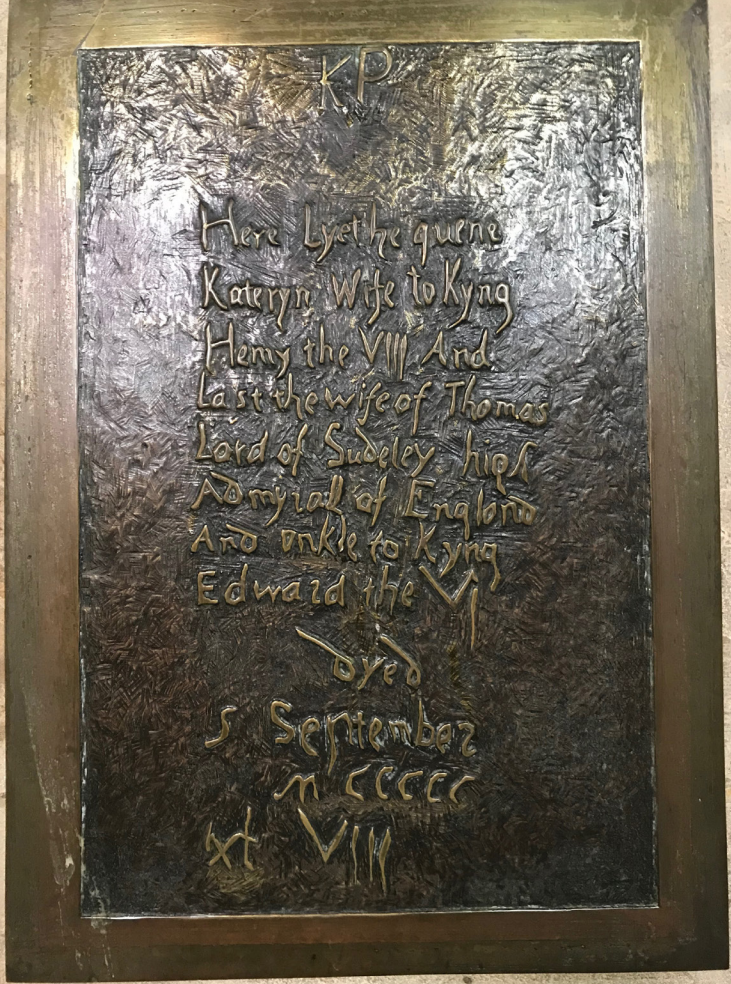 KP
Here Lyethe quene
Kateryn Wife to Kyng
Henry the VIII And
Last the wife of Thomas
Lord of Sudeley highe
Admyrall of England
And onkle to Kyng
Edward the VI
dyed
5 September
MCCCCC
xl VIII